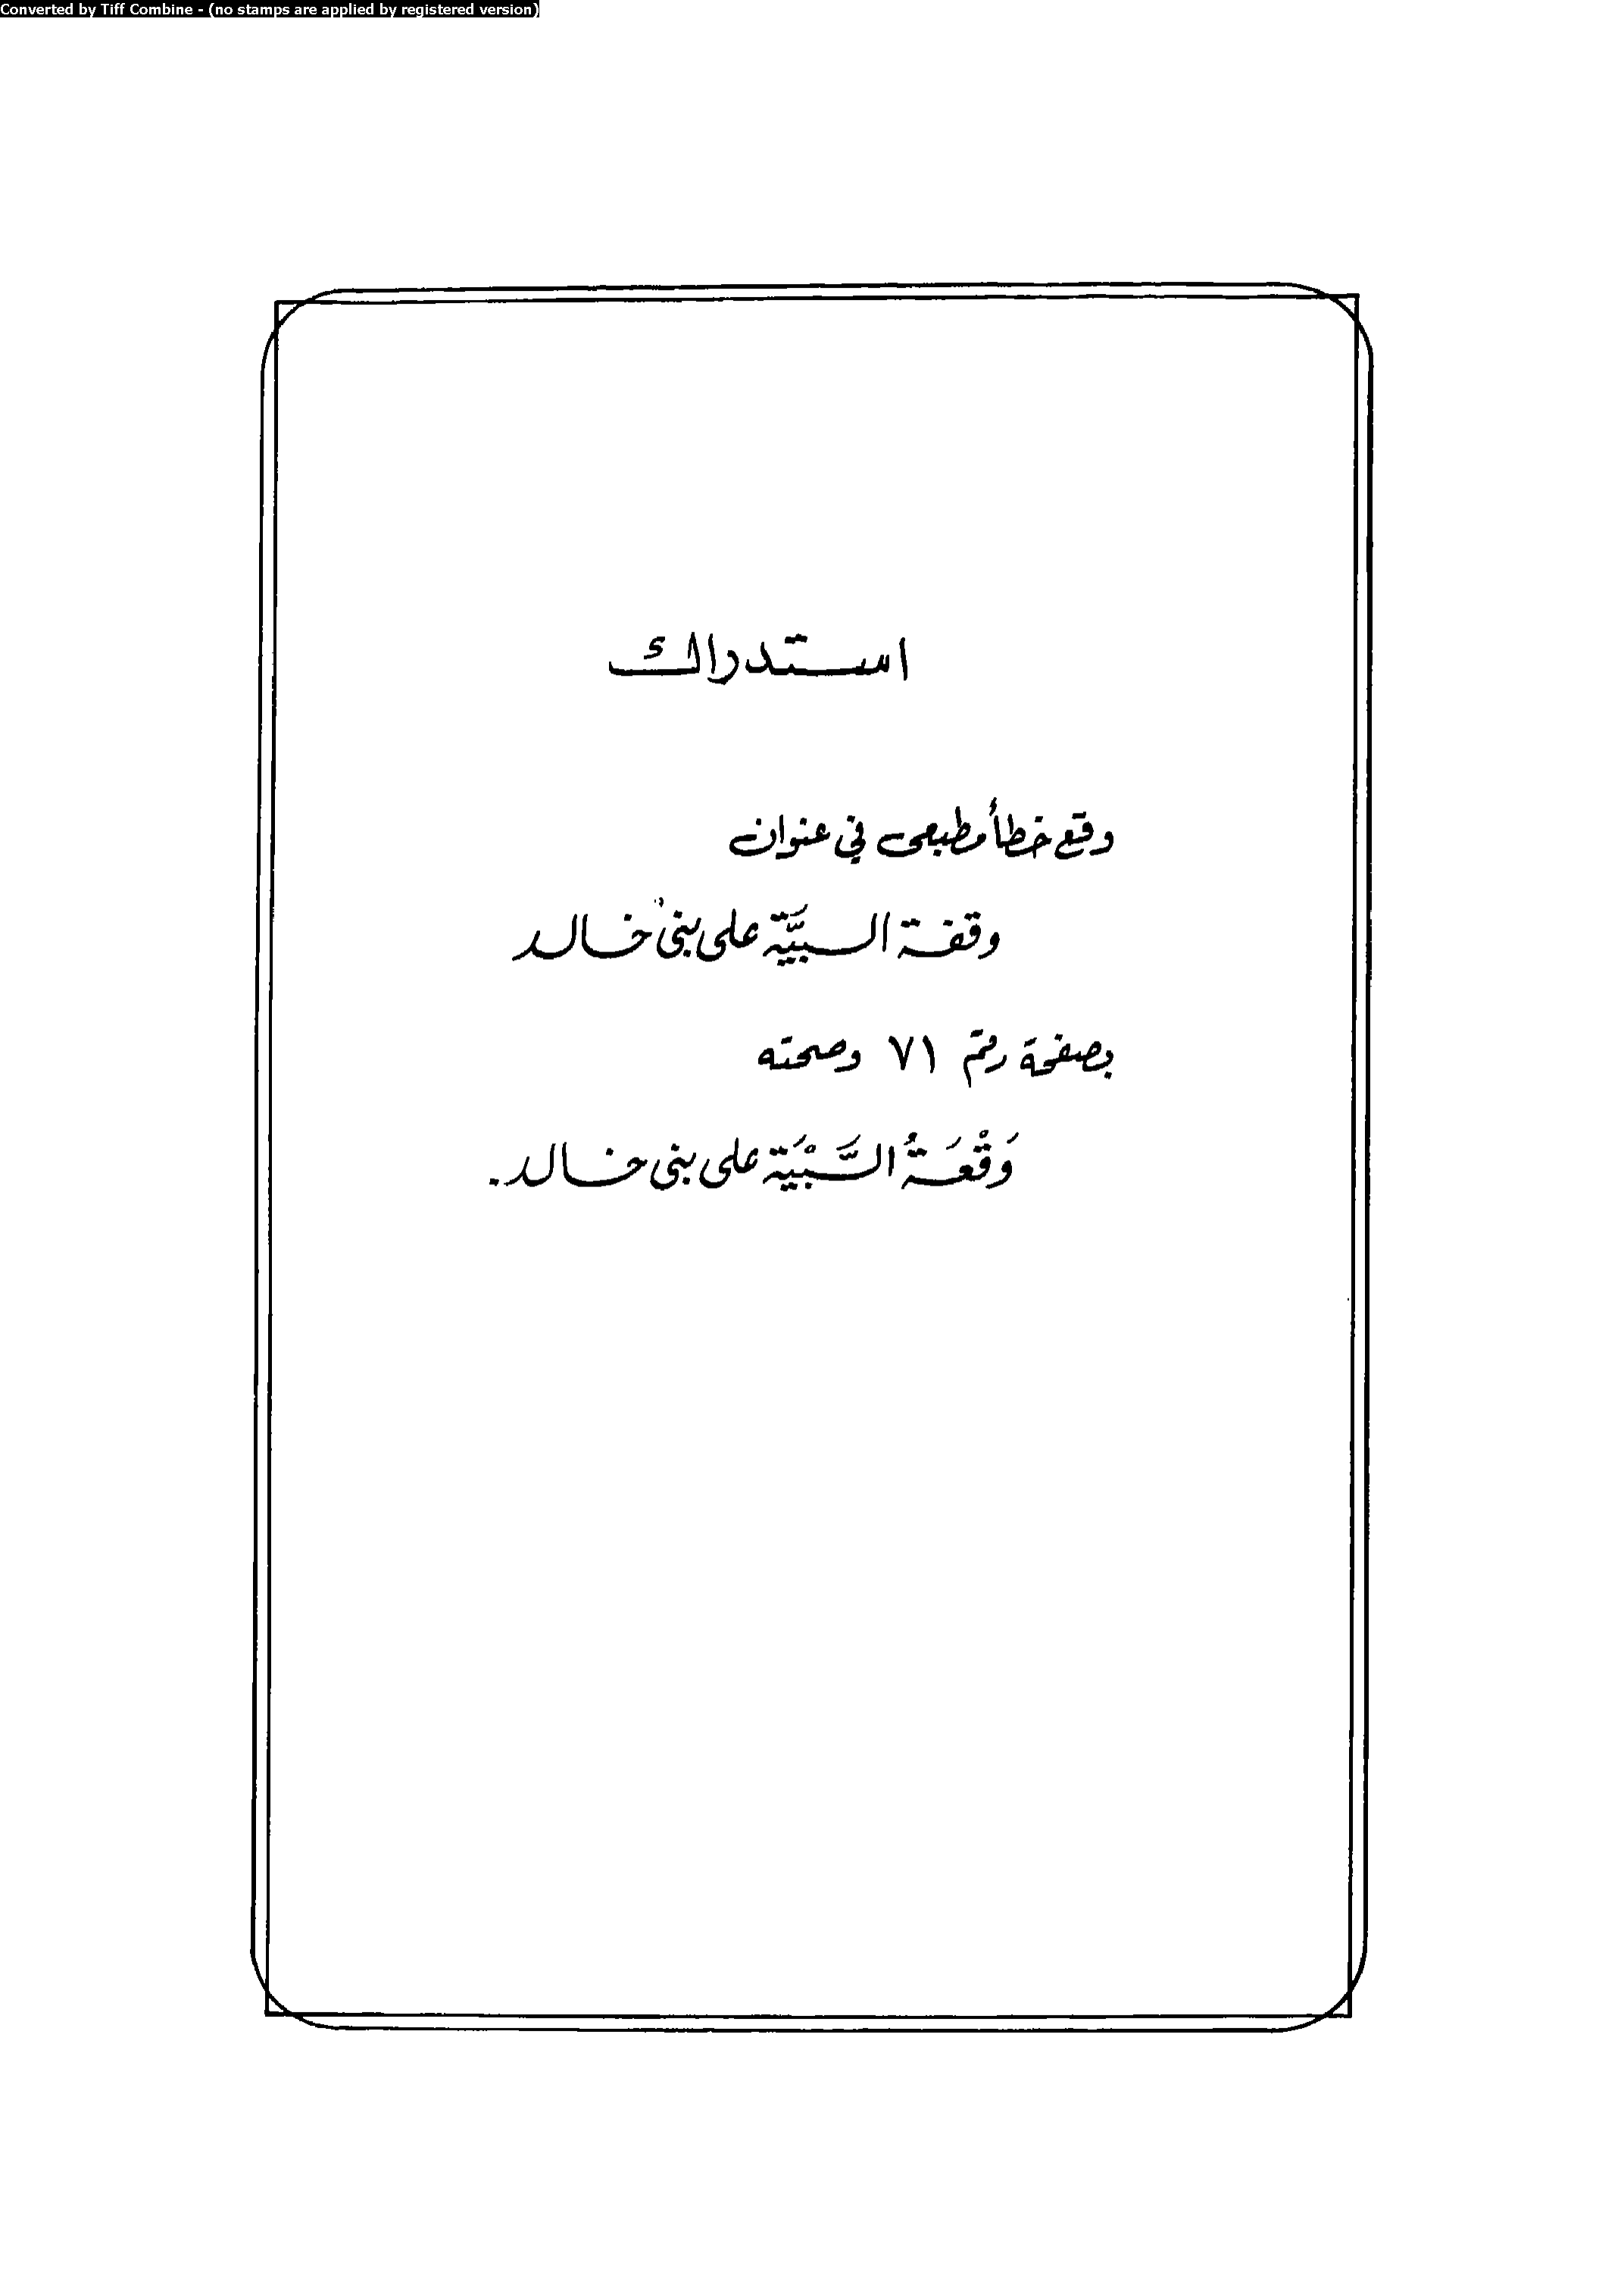 Converted by Tiff Combine - (no stamps are applied by registered version)
استدراك
وقع خطأ مطبعى في عنوان
وقفة السبيَّة على بنى خالد
بصفحة رقم ٧١ وصحته
وَقْعَةُ السَّبْيَة على بنى خالد.